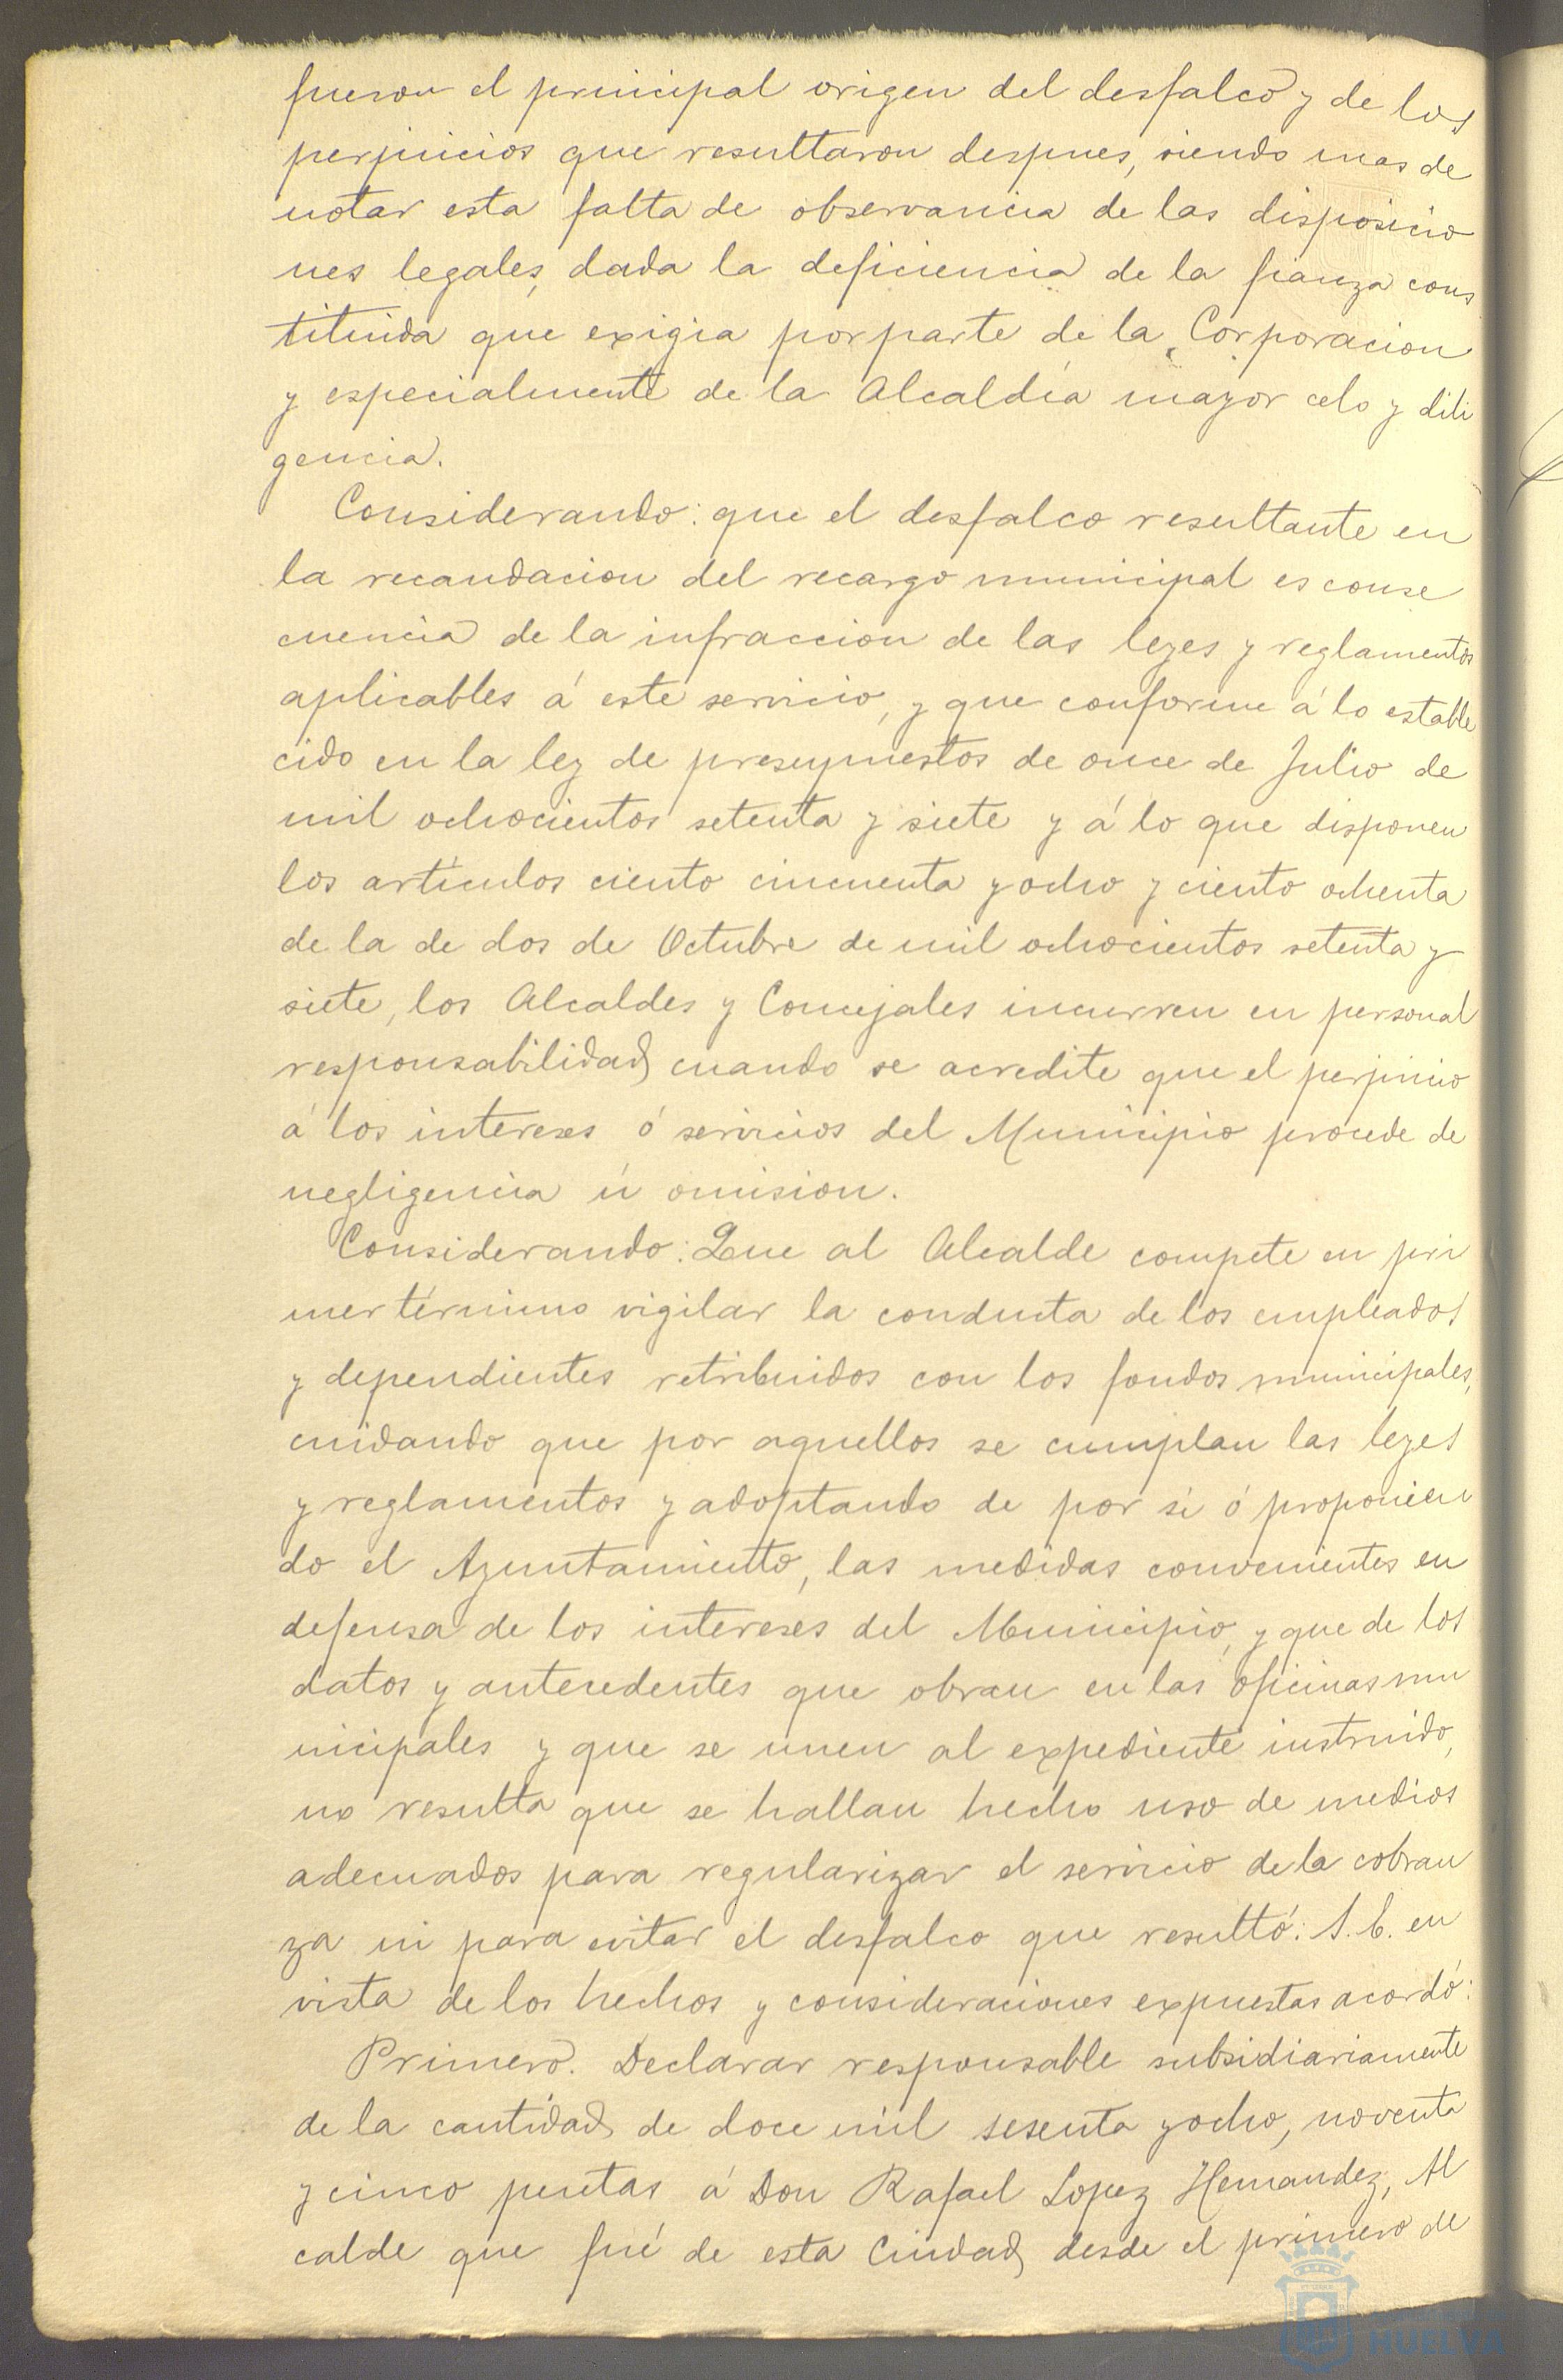 fueron el principal origen del desfalco y de los
perjuicios que resultaron despues, siendo mas de
notar esta falta de observancia de las disposicio
nes legales, dada la deficiencia de la fianza cons
tituida que exigia por parte de la Corporacion
y especialmente de la Alcaldía mayor celo y dili
gencia.
Considerando: que el desfalco resultante en
la recaudacion del recargo municipal es conse
cuencia de la infraccion de las leyes y reglamentos
aplicables á este servicio, y que conforme á lo estable
cido en la ley de presupuestos de once de Julio de
mil ochocientos setenta y siete y á lo que disponen
los artículos ciento cincuenta y ocho y ciento ochenta
de la de dos de Octubre de mil ochocientos setenta y
siete, los Alcaldes y Concejales incurren en personal
responsabilidad cuando se acredite que el perjuicio
á los intereses ó servicios del Municipio procede de
negligencia ú omision.
Considerando: Que al Alcalde compete en pri
mer término vigilar la conducta de los empleados
y dependientes retribuidos con los fondos municipales,
cuidando que por aquellos se cumplan las leyes
y reglamentos y adoptando de por si ó proponien
do el Ayuntamiento, las medidas convenientes en
defensa de los intereses del Municipio, y que de los
datos y antecedentes que obran en las oficinas mu
nicipales y que se unen al expediente instruido,
no resulta que se hallan hecho uso de medios
adecuados para regularizar el servicio de la cobran
za ni para evitar el desfalco que resultó: S. C. en
vista de los hechos y consideraciones expuestas acordó:
Primero. Declarar responsable subsidiariamente
de la cantidad de doce mil sesenta y ocho, noventa
y cinco pesetas á Don Rafael Lopez Hernandez, Al
calde que fué de esta Ciudad desde el primero de
HUELVA